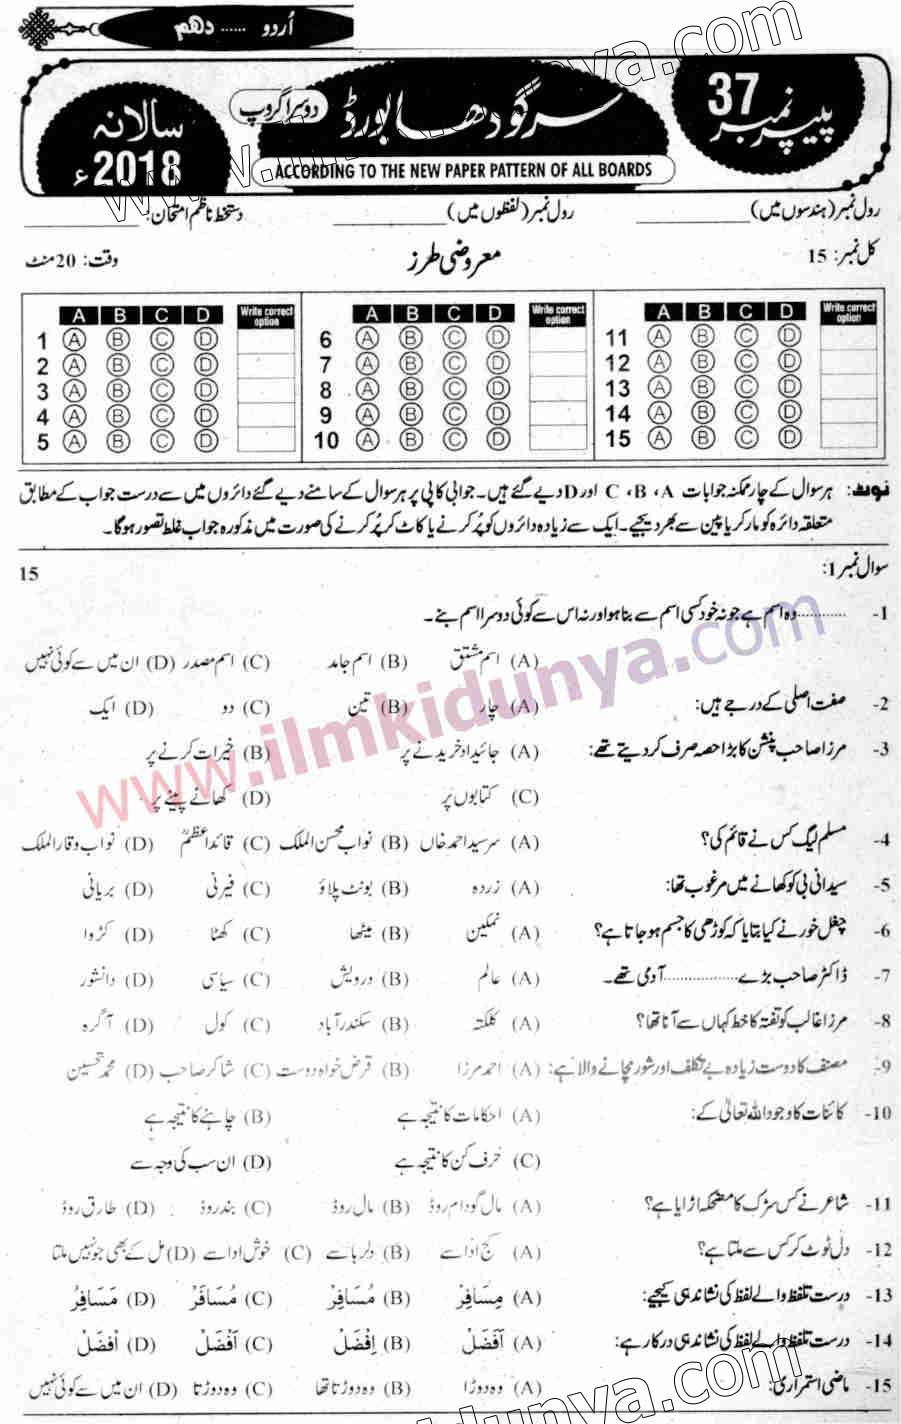 اُردو ...... دھم
پیپر نمبر 37
سرگودھا بورڈ
دوسرا گروپ
سالانہ 2018ء
ACCORDING TO THE NEW PAPER PATTERN OF ALL BOARDS
رول نمبر (ہندسوں میں) ____________ رول نمبر (لفظوں میں) ____________ دستخط ناظم امتحان: ____________
کل نمبر: 15 معروضی طرز وقت: 20 منٹ
A B C D Write correct option A B C D Write correct option A B C D Write correct option
1 A B C D 6 A B C D 11 A B C D
2 A B C D 7 A B C D 12 A B C D
3 A B C D 8 A B C D 13 A B C D
4 A B C D 9 A B C D 14 A B C D
5 A B C D 10 A B C D 15 A B C D
نوٹ: ہر سوال کے چار ممکنہ جوابات A ، B ، C اور D دیے گئے ہیں۔ جوابی کاپی پر ہر سوال کے سامنے دیے گئے دائروں میں سے درست جواب کے مطابق
متعلقہ دائرہ کو مارکر یا پین سے بھر دیجیے۔ ایک سے زیادہ دائروں کو پُر کرنے یا کاٹ کر پُر کرنے کی صورت میں مذکورہ جواب غلط تصور ہوگا۔
سوال نمبر 1: 15
1- ............ وہ اسم ہے جو نہ خود کسی اسم سے بنا ہو اور نہ اس سے کوئی دوسرا اسم بنے۔
(A) اسم مشتق (B) اسم جامد (C) اسم مصدر (D) ان میں سے کوئی نہیں
2- صفت اصلی کے درجے ہیں: (A) چار (B) تین (C) دو (D) ایک
3- مرزا صاحب پنشن کا بڑا حصہ صرف کر دیتے تھے: (A) جائیداد خریدنے پر (B) خیرات کرنے پر
(C) کتابوں پر (D) کھانے پینے پر
4- مسلم لیگ کس نے قائم کی؟ (A) سرسید احمد خاں (B) نواب محسن الملک (C) قائداعظمؒ (D) نواب وقار الملک
5- سیدانی بی کو کھانے میں مرغوب تھا: (A) زردہ (B) بونٹ پلاؤ (C) فیرنی (D) بریانی
6- چغل خور نے کیا بتایا کہ کوڑھی کا جسم ہو جاتا ہے؟ (A) نمکین (B) میٹھا (C) کھٹا (D) کڑوا
7- ڈاکٹر صاحب بڑے ................ آدمی تھے۔ (A) عالم (B) درویش (C) سیاسی (D) دانشور
8- مرزا غالب کو تفتہ کا خط کہاں سے آنا تھا؟ (A) کلکتہ (B) سکندر آباد (C) کول (D) آگرہ
9- مصنف کا دوست زیادہ بے تکلف اور شور مچانے والا ہے: (A) احمد مرزا (B) قرض خواہ دوست (C) شاکر صاحب (D) محمد تحسین
10- کائنات کا وجود اللہ تعالیٰ کے: (A) احکامات کا نتیجہ ہے (B) چاہنے کا نتیجہ ہے
(C) حرف کن کا نتیجہ ہے (D) ان سب کی وجہ سے
11- شاعر نے کس سڑک کا مضحکہ اڑایا ہے؟ (A) مال گودام روڈ (B) مال روڈ (C) بندر روڈ (D) طارق روڈ
12- دل ٹوٹ کر کس سے ملتا ہے؟ (A) کج ادا سے (B) دلربا سے (C) خوش ادا سے (D) مل کے بھی جو نہیں ملتا
13- درست تلفظ والے لفظ کی نشاندہی کیجیے: (A) مِسَافِرْ (B) مُسَافِرْ (C) مُسَافَرْ (D) مَسَافِرُ
14- درست تلفظ والے لفظ کی نشاندہی درکار ہے: (A) اَفَضَلْ (B) اِفْضَلْ (C) اَفْضَلْ (D) اُفْضَلْ
15- ماضی استمراری: (A) وہ دوڑا (B) وہ دوڑتا تھا (C) وہ دوڑتا (D) ان میں سے کوئی نہیں
www.ilmkidunya.com